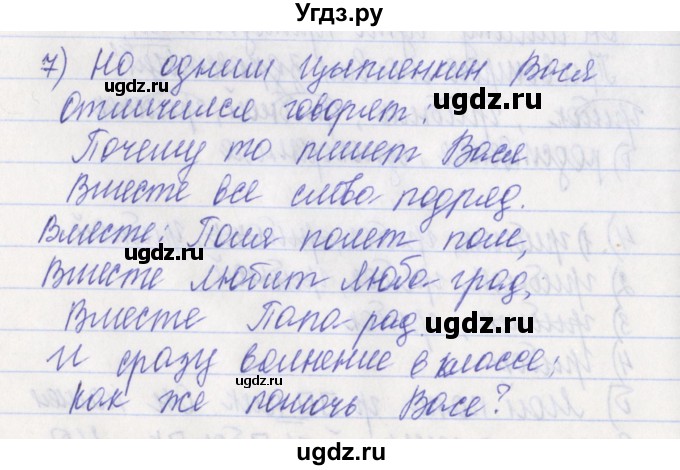 Угдз.ру
7) Но одним Цыпленкин Вася
ugdz.ru
отличился говорят:
ugdz.ru
Почему то пишет Вася
Вместе все слова подряд.
ugdz.ru
Вместе: Поля полет поле,
Вместе любит Люба-град,
Вместе Папа-рад.
ugdz.ru
И сразу волнение в классе;
ugdz.ru
Как же помочь Васе?
ugdz.ru